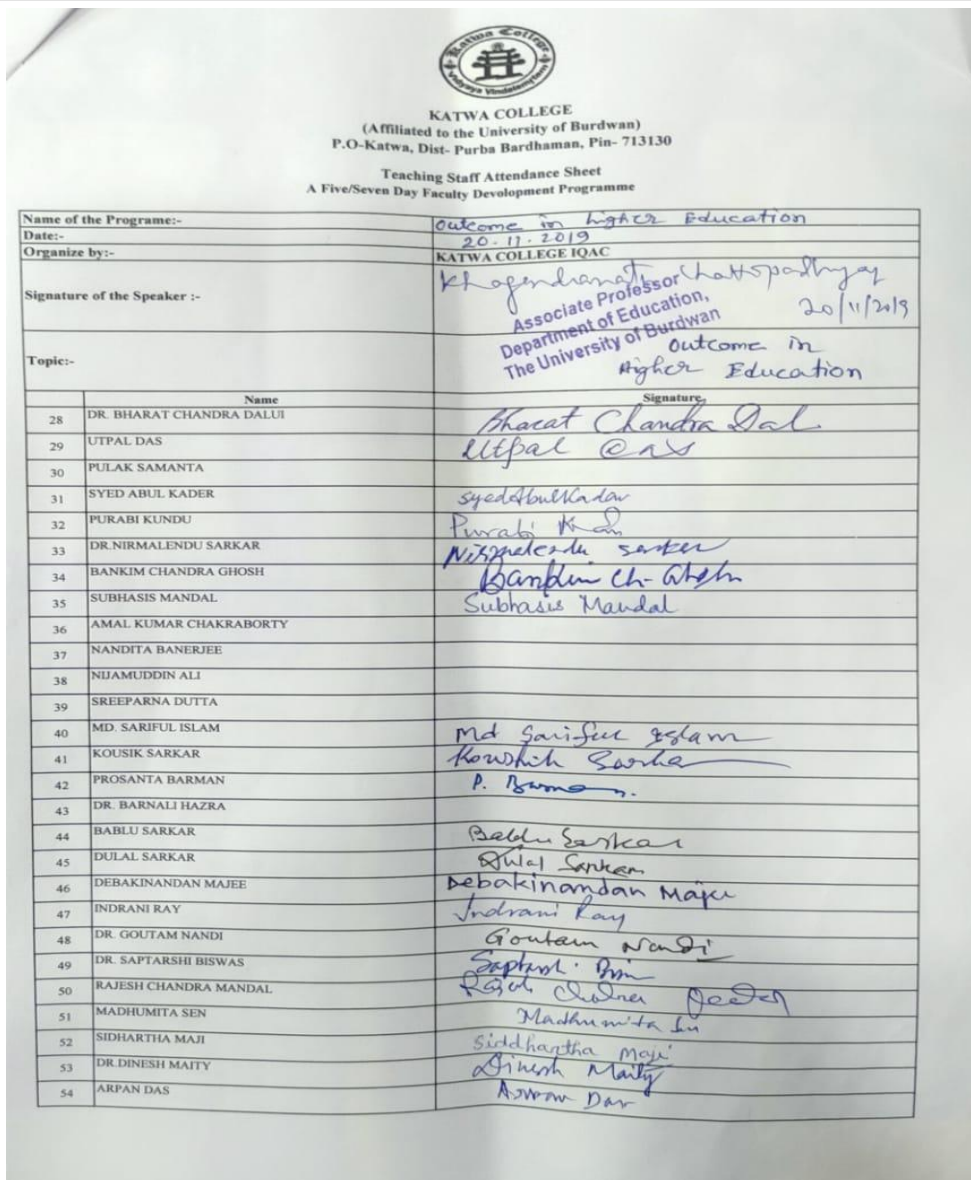 Katwa College
Vidyaya Vindatemrytam
KATWA COLLEGE
(Affiliated to the University of Burdwan)
P.O-Katwa, Dist- Purba Bardhaman, Pin- 713130
Teaching Staff Attendance Sheet
A Five/Seven Day Faculty Devolopment Programme
Name of the Programe:- Outcome in higher Education
Date:- 20-11-2019
Organize by:- KATWA COLLEGE IQAC
Signature of the Speaker :- Khagendranath Chattopadhyay
20/11/2019
Associate Professor
Department of Education,
The University of Burdwan
Topic:- Outcome in
Higher Education
Name Signature
28 DR. BHARAT CHANDRA DALUI Bharat Chandra Dal
29 UTPAL DAS Utpal Das
30 PULAK SAMANTA
31 SYED ABUL KADER Syed Abul Kader
32 PURABI KUNDU Purabi
33 DR.NIRMALENDU SARKAR Nirmalendu Sarker
34 BANKIM CHANDRA GHOSH Bankim Ch- Ghosh
35 SUBHASIS MANDAL Subhasis Mandal
36 AMAL KUMAR CHAKRABORTY
37 NANDITA BANERJEE
38 NIJAMUDDIN ALI
39 SREEPARNA DUTTA
40 MD. SARIFUL ISLAM Md Sariful Islam
41 KOUSIK SARKAR Koushik Sarkar
42 PROSANTA BARMAN P. Barman.
43 DR. BARNALI HAZRA
44 BABLU SARKAR Bablu Sarkar
45 DULAL SARKAR Dulal Sarkar
46 DEBAKINANDAN MAJEE Debakinandan Majee
47 INDRANI RAY Indrani Ray
48 DR. GOUTAM NANDI Goutam Nandi
49 DR. SAPTARSHI BISWAS
50 RAJESH CHANDRA MANDAL
51 MADHUMITA SEN Madhumita Sen
52 SIDHARTHA MAJI Siddhartha Maji
53 DR.DINESH MAITY Dinesh Maity
54 ARPAN DAS Arpan Das